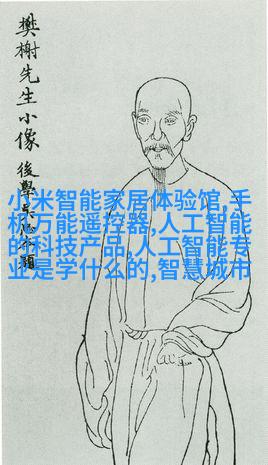 樊榭先生小像
後學
小米智能家居体验馆,手
机万能遥控器,人工智能
的科技产品,人工智能专
业是学什么的,智慧城市